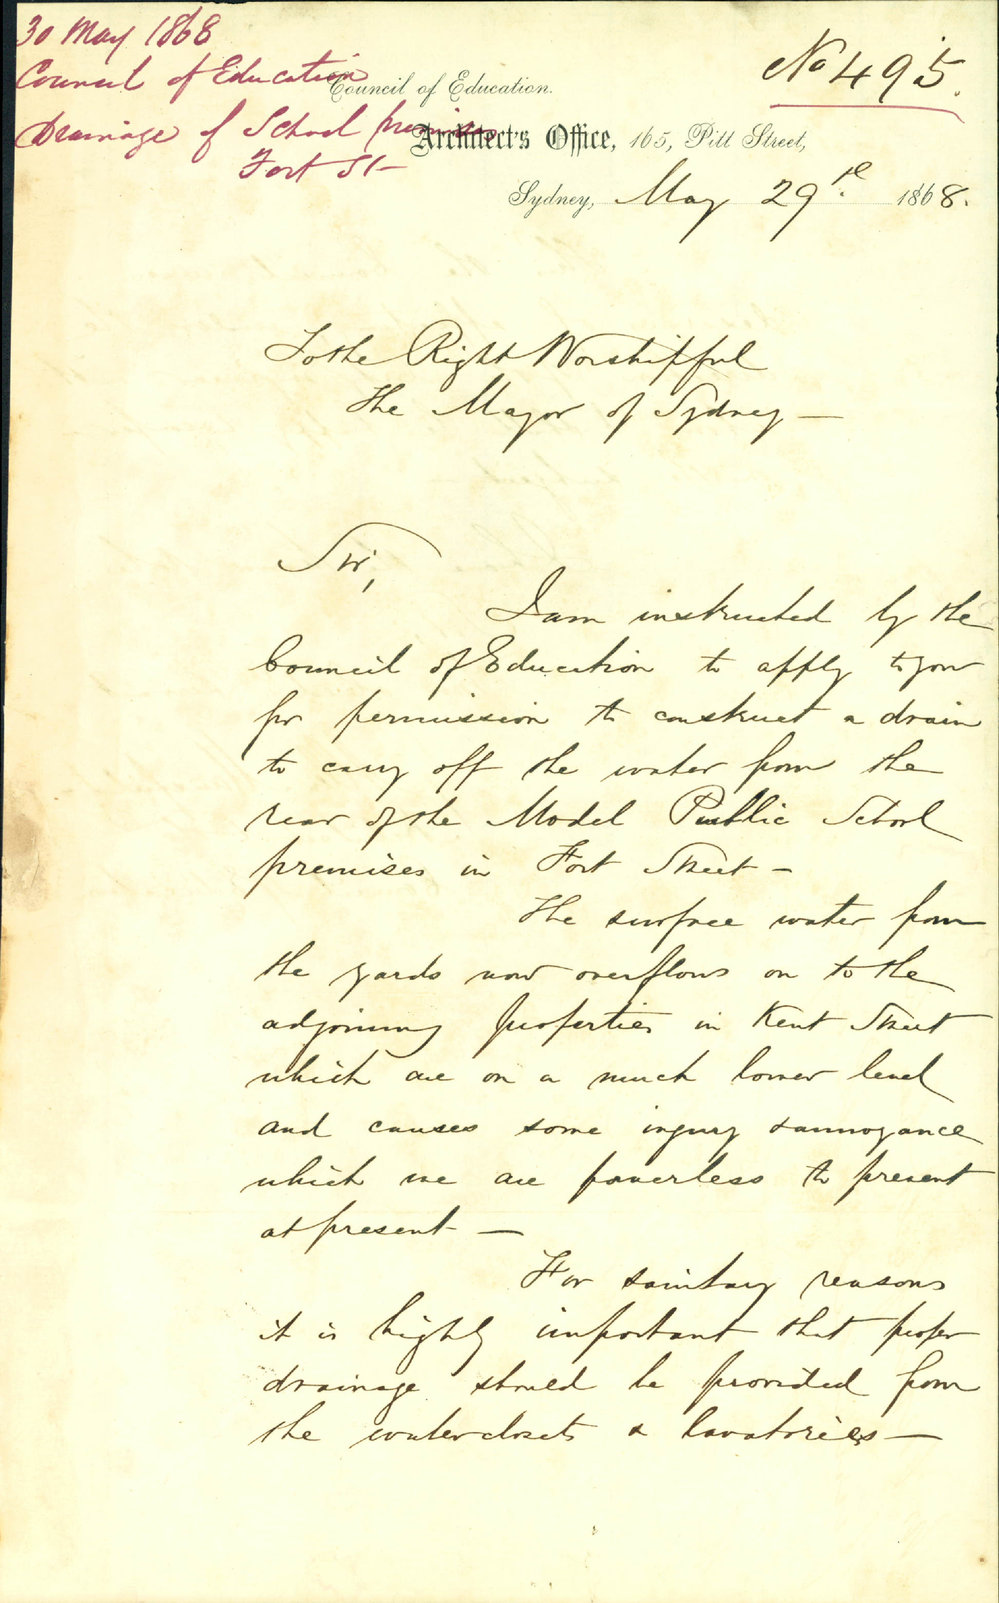 30 May 1868
Council of Education
Drainage of School premises
Fort St
No 495.
Council of Education.
Architect's Office, 165, Pitt Street,
Sydney, May 29th 1868.
To the Right Worshipful
the Mayor of Sydney —
Sir,
I am instructed by the
Council of Education to apply to you
for permission to construct a drain
to carry off the water from the
rear of the Model Public School
premises in Fort Street —
The surface water from
the yards now overflows on to the
adjoining properties in Kent Street
which are on a much lower level
and causes some injury & annoyance
which we are powerless to prevent
at present —
For sanitary reasons
it is highly important that proper
drainage should be provided from
the waterclosets & lavatories —